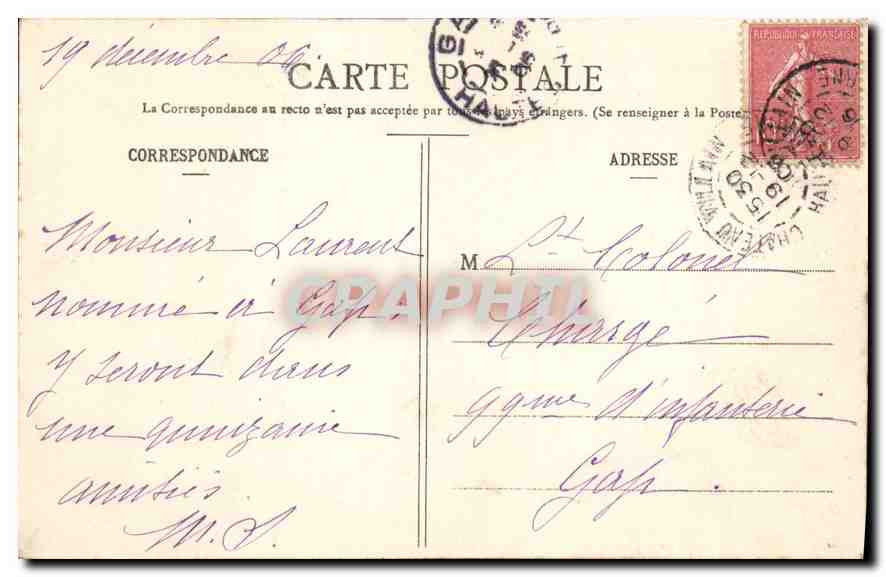 19 décembre 06.
CARTE POSTALE
La Correspondance au recto n'est pas acceptée par tous les pays étrangers. (Se renseigner à la Poste
CORRESPONDANCE
Monsieur Laurent
nommé à Gap
y seront dans
une quinzaine
amitiés.
M. S.
ADRESSE
M Lt Colonel
Chargé
99me d'infanterie
Gap.
REPUBLIQUE FRANÇAISE
CHATEAU
15 30
19
GA
HA
CPAPHIL